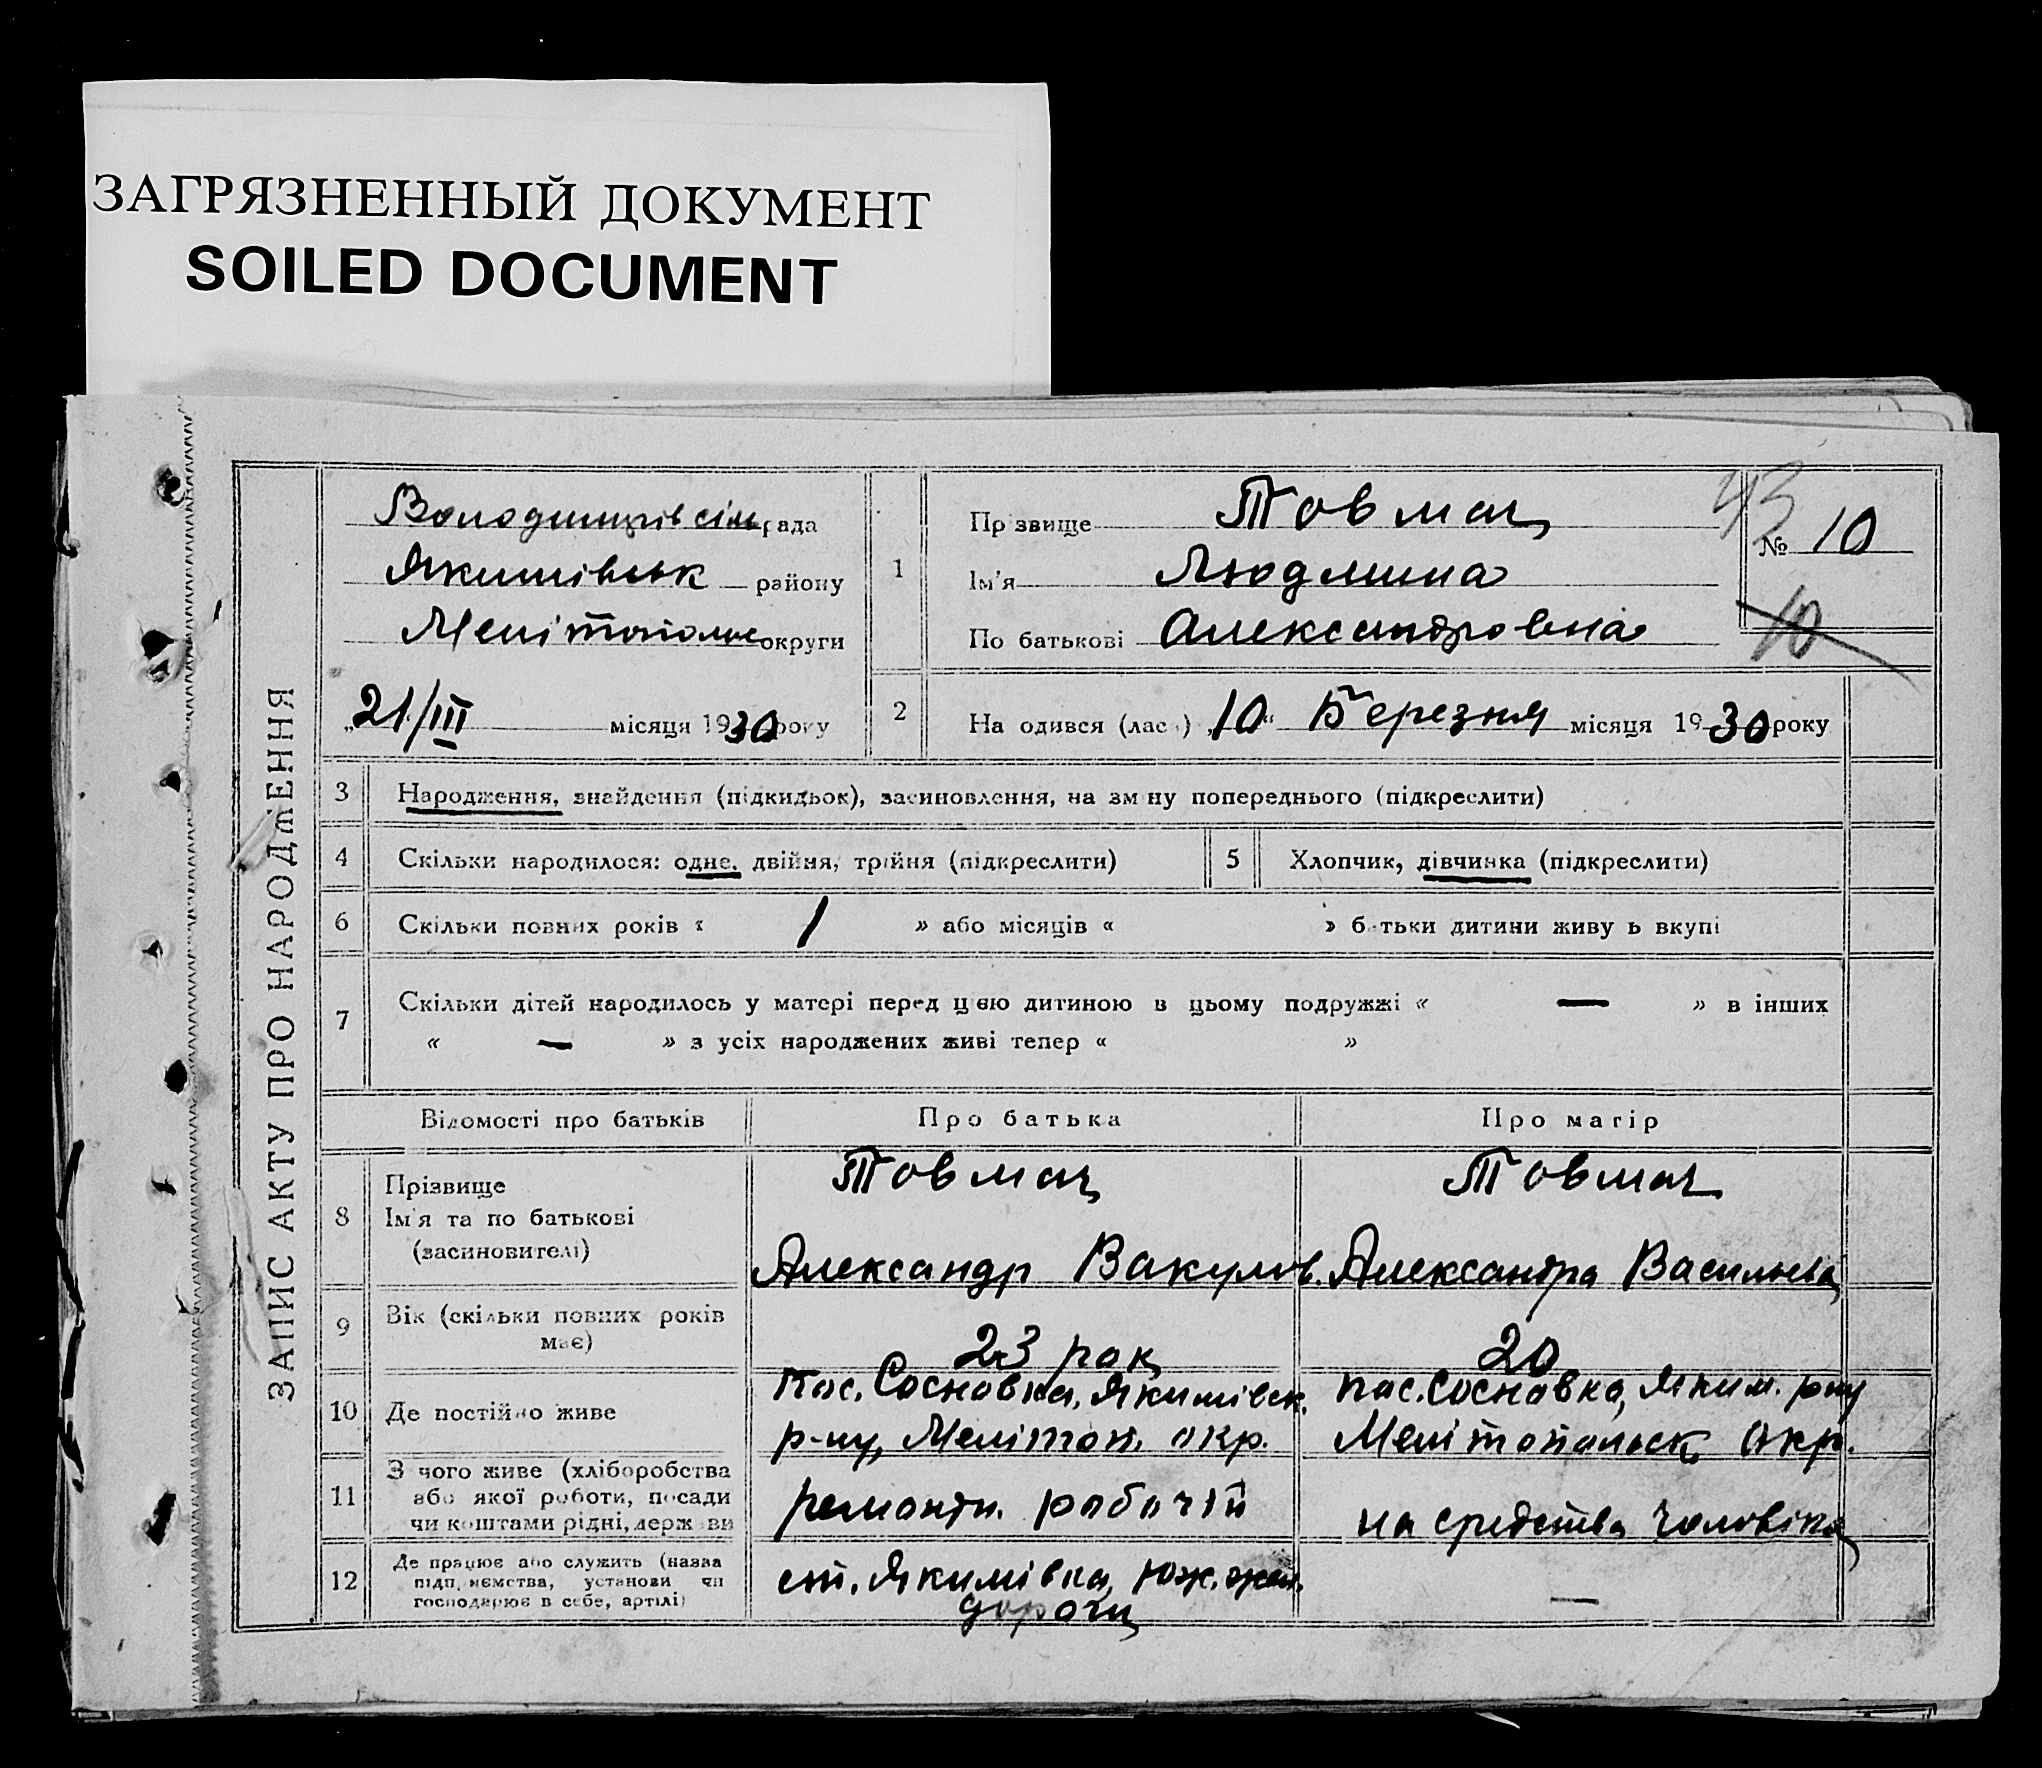 ЗАГРЯЗНЕННЫЙ ДОКУМЕНТ
SOILED DOCUMENT
ЗАПИС АКТУ ПРО НАРОДЖЕННЯ
сіль рада
Якимівськ району
Мелітопольс округи
„21/III місяця 1930 року
1
Прзвище Товмач
Ім'я Людмила
По батькові Александровна
43
№ 10
10
2
На одився (лас ) „10“ Березня місяця 1930 року
3 Народження, знайдення (підкидьок), засиновлення, на зм ну попереднього (підкреслити)
4 Скільки народилося: одне, двійня, трійня (підкреслити)
5 Хлопчик, дівчинка (підкреслити)
6 Скільки повних років « 1 » або місяців « » б тьки дитини живу ь вкупі
7 Скільки дітей народилось у матері перед цією дитиною в цьому подружжі « — » в інших
« — » з усіх народжених живі тепер « »
Відомості про батьків
Про батька
Про матір
8 Прізвище
Ім'я та по батькові
(засиновителі)
Товмач
Александр Вакулов.
Товмач
Александра Васильева
9 Вік (скільки повних років
має)
23 рок
20
10 Де постійно живе
пос. Сосновка, Якимівск.
р-ну, Меліптоп. окр.
пос. Сосновка, Яким. рну
Мелітопольск окр.
11 З чого живе (хліборобства
або якої роботи, посади
чи коштами рідні, держ ви
ремонтн. рабочій
на средства чоловіка
12 Де працює або служить (назва
підп, иємства, установи чи
господарює в себе, артілі)
ст. Якимівка, Юж. жел.
дороги
—